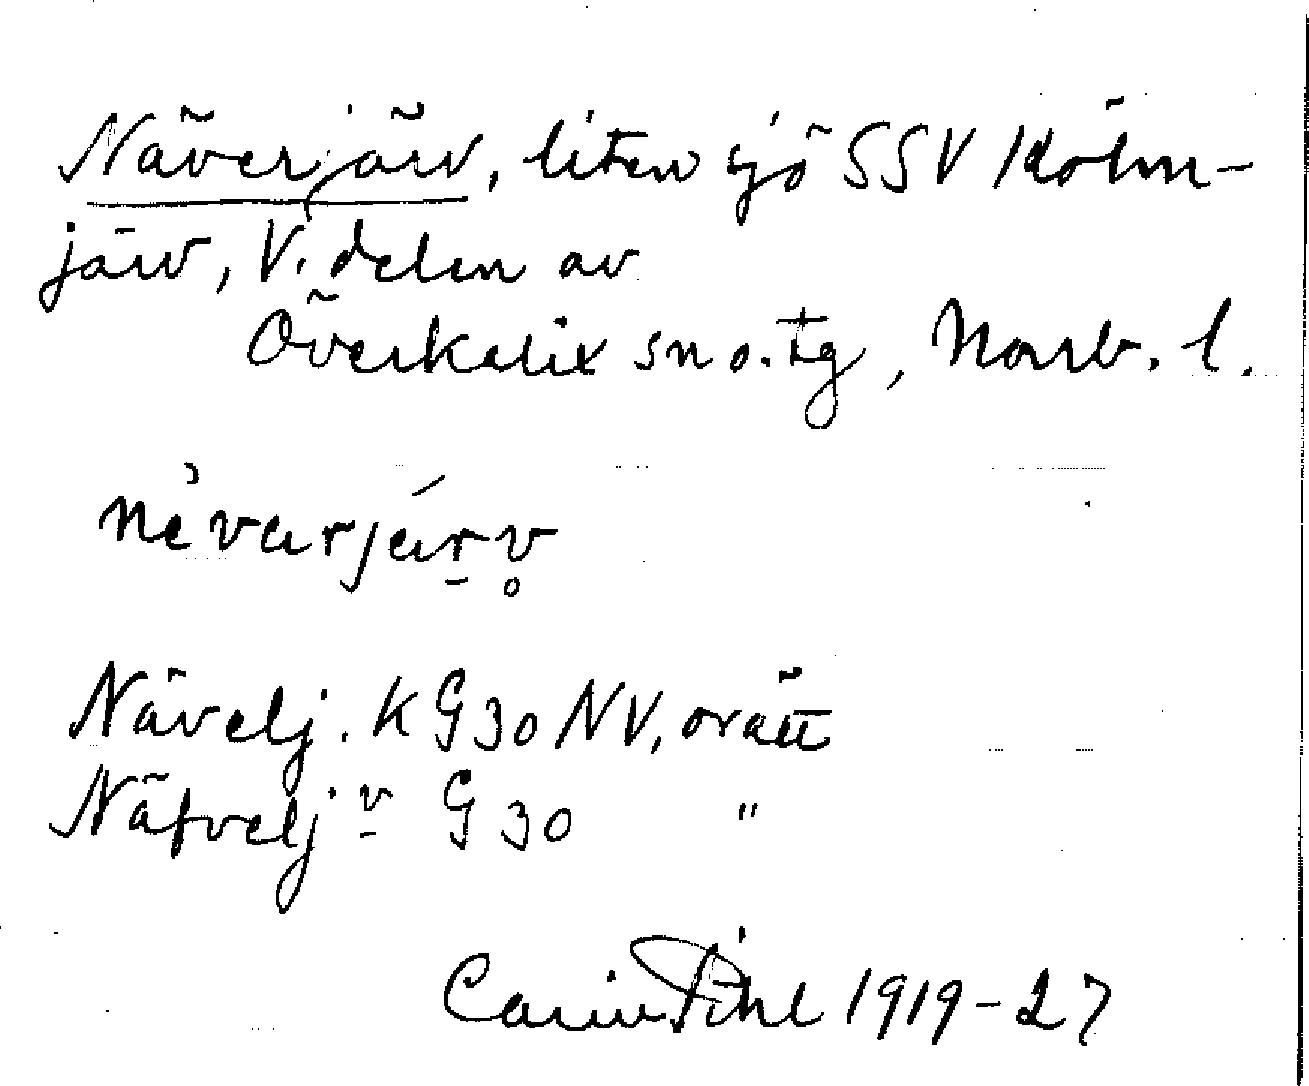 Näverjärv, liten sjö SSV Kölm-
järv, V. delen av
Överkalix sn o. tg, Norrb. l.
nèvarjárv̥
Nävelj. K G30 NV, orätt
Näfvelj:v G30 "
Carin Pihl 1919-27